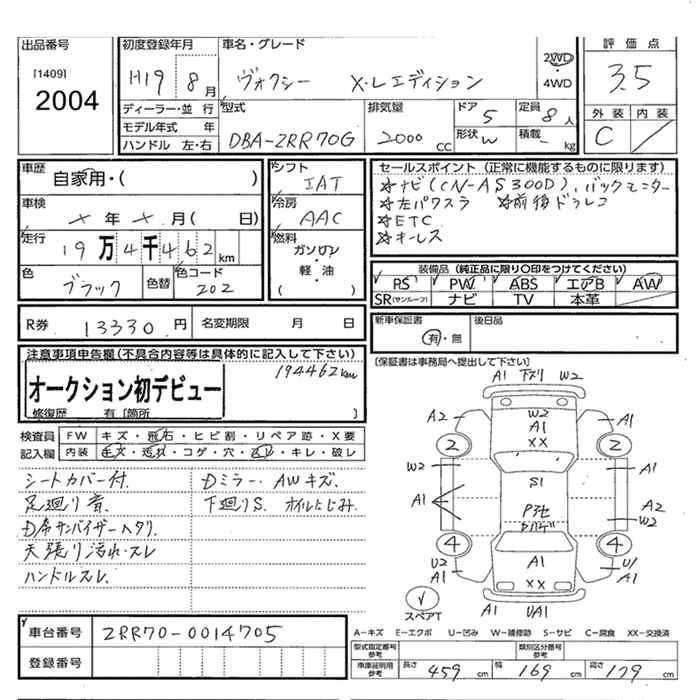 出品番号
[1409]
2004
初度登録年月
H19 8月
車名・グレード
ヴォクシー X・Lエディション
2WD
4WD
評価点
3.5
外装 内装
C
ディーラー・並行
モデル年式 年
ハンドル 左・右
型式
DBA-ZRR70G
排気量
2000 cc
ドア 5
形状 W
定員 8人
積載 - kg
車歴
自家用・( )
車検
× 年 × 月( 日)
走行
19万4千462 km
色
ブラック
色替
色コード
202
シフト
IAT
冷房
AAC
燃料
ガソリン
軽・油
( )
セールスポイント (正常に機能するものに限ります)
☆ナビ(CN-AS300D)、バックモニター
☆左パワスラ ☆前後ドラレコ
☆ETC
☆キーレス
装備品 (純正品に限り○印をつけてください)
PS PW ABS エアB AW
SR(サンルーフ) ナビ TV 本革
R券 13330円
名変期限 月 日
新車保証書
有・無
後日品
[保証書は事務局へ提出して下さい]
注意事項申告欄(不具合内容等は具体的に記入して下さい)
194462km
オークション初デビュー
修復歴 有 [箇所 ]
検査員
記入欄
FW キズ・飛石・ヒビ割・リペア跡・X要
内装 キズ・汚れ・コゲ・穴・スレ・キレ・破レ
シートカバー付.
足廻り音
D席サンバイザーヘタリ
天張り汚れ・スレ
ハンドルスレ.
Dミラー・AWキズ.
下廻りS. オイルにじみ.
A1 下スリ W2
W2
A1
XX
A2
A1
2
2
W2
A1
A1
S1
A1
A2
W2
4
4
A1
XX
U2
A1
U1
A1
A1
UA1
スペアT
A-キズ E-エクボ U-凹み W-補修跡 S-サビ C-腐食 XX-交換済
車台番号
ZRR70-0014705
登録番号
型式指定番号
参考
類別区分番号
参考
車庫証明用
参考
長さ 459 cm
幅 169 cm
高さ 179 cm